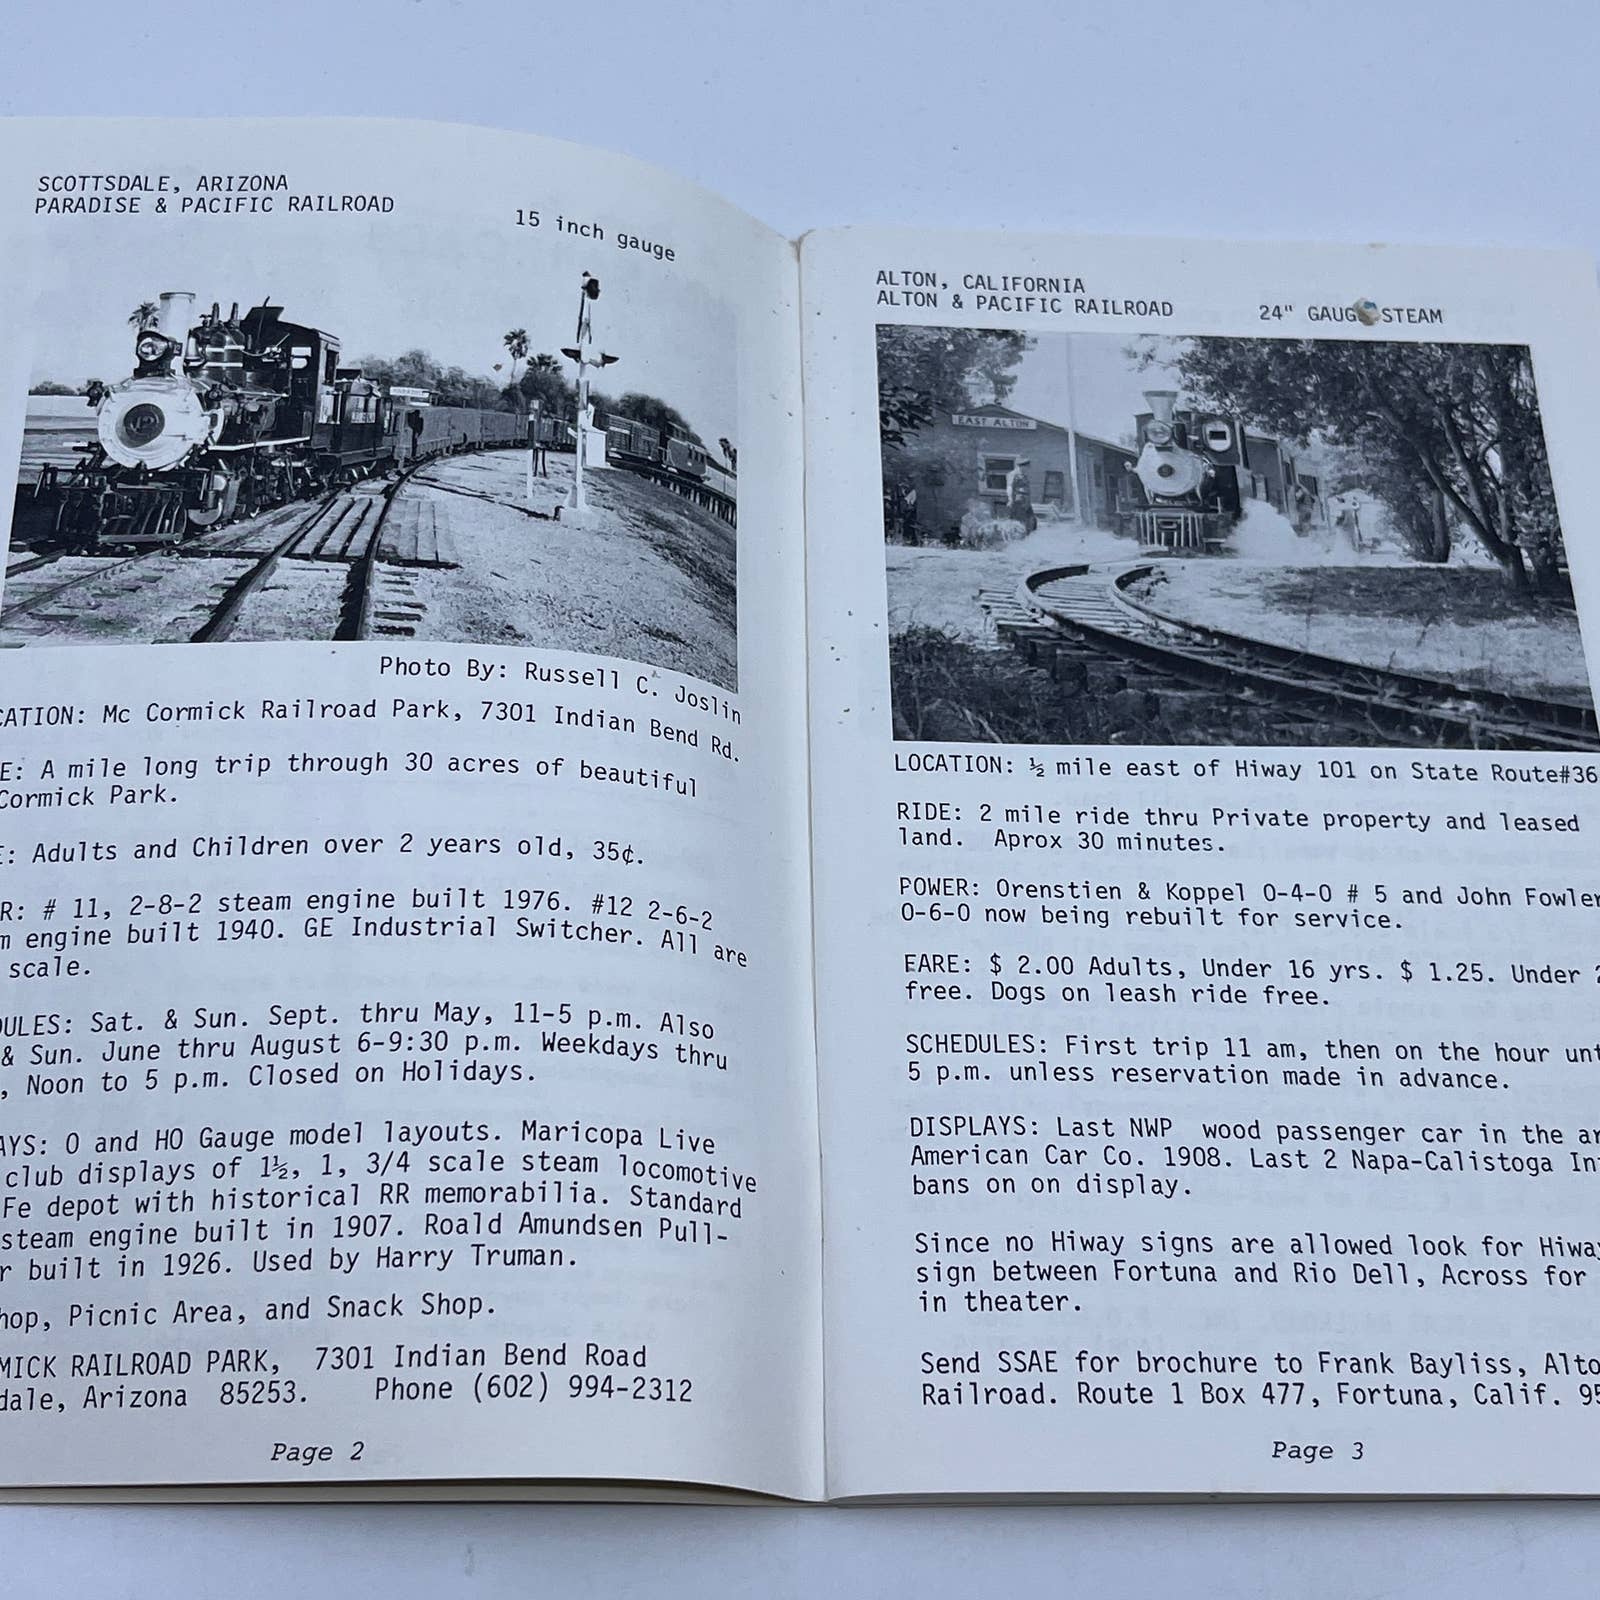 SCOTTSDALE, ARIZONA
PARADISE & PACIFIC RAILROAD
15 inch gauge
Photo By: Russell C. Joslin
CATION: Mc Cormick Railroad Park, 7301 Indian Bend Rd.
E: A mile long trip through 30 acres of beautiful
Cormick Park.
E: Adults and Children over 2 years old, 35¢.
R: # 11, 2-8-2 steam engine built 1976. #12 2-6-2
m engine built 1940. GE Industrial Switcher. All are
scale.
ULES: Sat. & Sun. Sept. thru May, 11-5 p.m. Also
& Sun. June thru August 6-9:30 p.m. Weekdays thru
, Noon to 5 p.m. Closed on Holidays.
AYS: O and HO Gauge model layouts. Maricopa Live
club displays of 1½, 1, 3/4 scale steam locomotive
Fe depot with historical RR memorabilia. Standard
steam engine built in 1907. Roald Amundsen Pull-
r built in 1926. Used by Harry Truman.
hop, Picnic Area, and Snack Shop.
MICK RAILROAD PARK, 7301 Indian Bend Road
dale, Arizona 85253. Phone (602) 994-2312
Page 2
ALTON, CALIFORNIA
ALTON & PACIFIC RAILROAD
24" GAUGE STEAM
EAST ALTON
LOCATION: ½ mile east of Hiway 101 on State Route#36
RIDE: 2 mile ride thru Private property and leased
land. Aprox 30 minutes.
POWER: Orenstien & Koppel 0-4-0 # 5 and John Fowler
0-6-0 now being rebuilt for service.
FARE: $ 2.00 Adults, Under 16 yrs. $ 1.25. Under 2
free. Dogs on leash ride free.
SCHEDULES: First trip 11 am, then on the hour unt
5 p.m. unless reservation made in advance.
DISPLAYS: Last NWP wood passenger car in the ar
American Car Co. 1908. Last 2 Napa-Calistoga In
bans on on display.
Since no Hiway signs are allowed look for Hiway
sign between Fortuna and Rio Dell, Across for
in theater.
Send SSAE for brochure to Frank Bayliss, Alto
Railroad. Route 1 Box 477, Fortuna, Calif. 95
Page 3